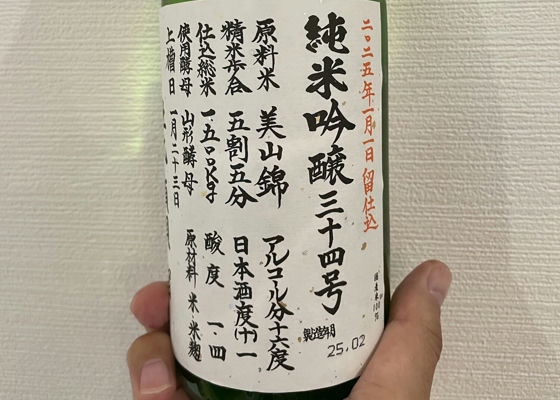 二〇二五年一月一日 留仕込
純米吟醸三十四号
国産米100%
製造年月
25.02
原料米 美山錦 アルコール分十六度
精米歩合 五割五分 日本酒度(十)一
仕込総米 一五〇〇Kg 酸度 一・四
使用酵母 山形酵母 原材料 米・米麹
上槽日 一月二十三日